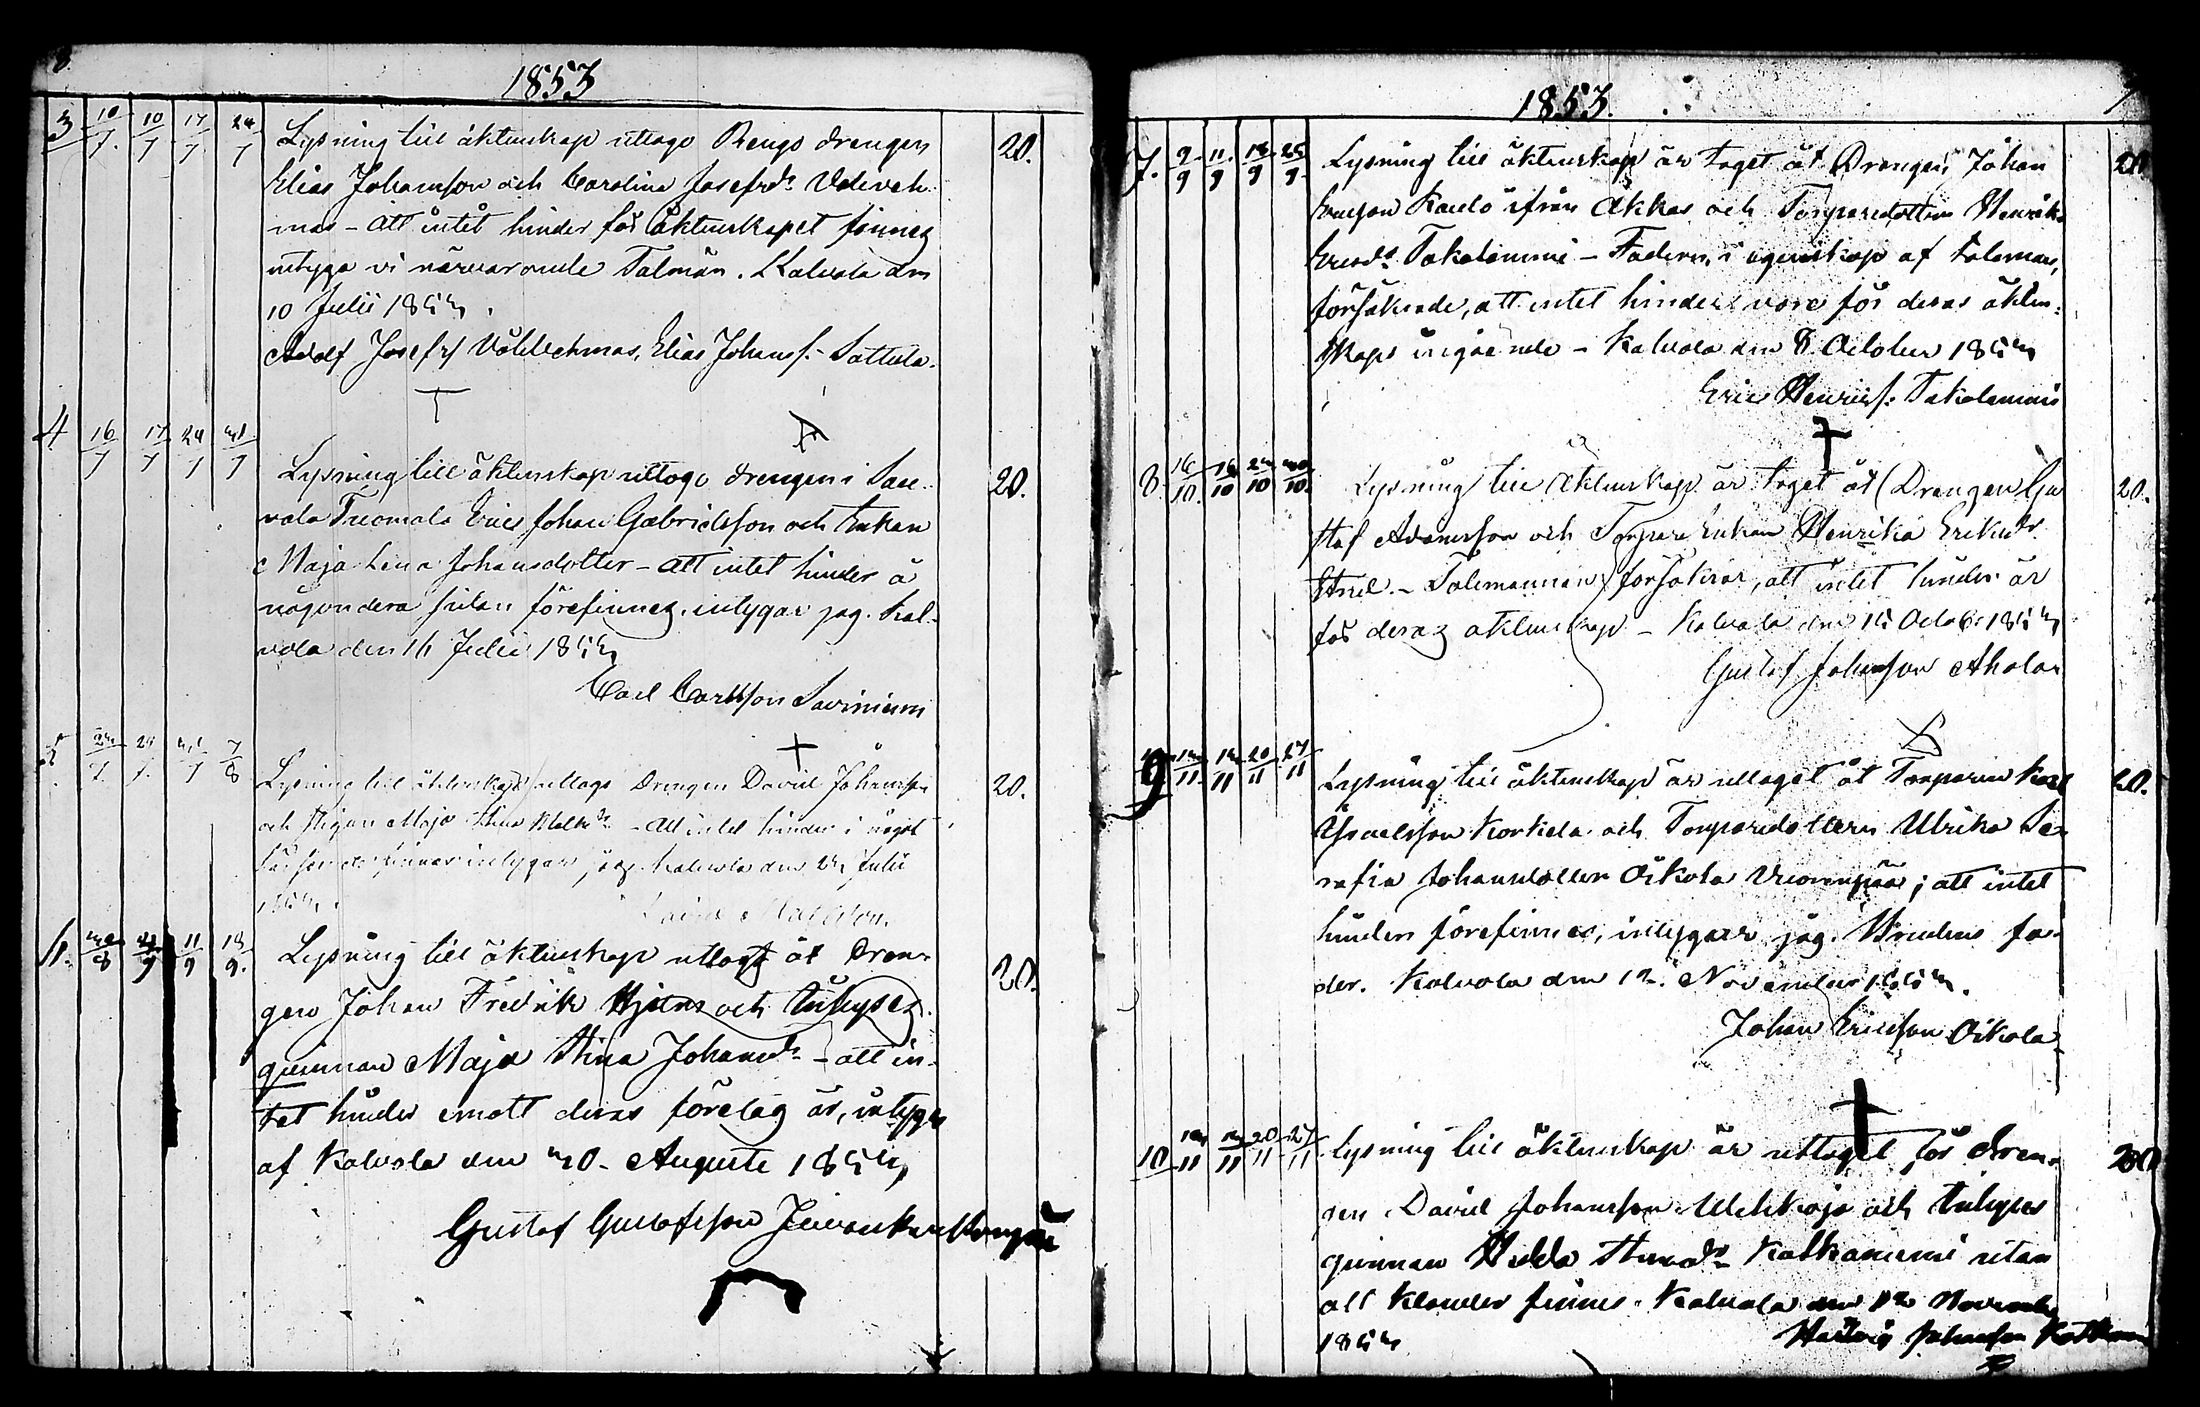 8.
1853
3 10/7. 10/7 17/7. 24/7
Lysning till äktenskap uttogo Rengs drengen 20.
Elias Johansson och Carolina Josefsdr
mas - att intet hinder för äktenskapet finnes
intyga vi närvarande Talmän. Kalvola den
10 Julii 1853.
Adolf Josefs/ Elias Johanss. Sattula.
4 16/7 17/7 24/7 31/7
Lysning till äktenskap uttogo drengen i Sau- 20.
vala Tuomala Eric Johan Gabrielsson och Enkan
Maja Lena Johansdotter - att intet hinder å
någondera sidan förefinnes, intygar jag. Kal-
vola den 16 Julii 1853
Carl Carlsson Saviniemi
5 23/7. 24/7. 31/7 7/8
Lysning till äktenskap uttogo Drengen David Johansson 20.
och Pigan Maja Stina - att intet hinder i något
finnes intygar jag. Kalvola den 23 Julii
1853.
6. 30/8 4/9 11/9 18/9.
Lysning till äktenskap uttogs åt Dren- 20.
gen Johan Fredrik och Inhyses
qvinnan Maja Stina Johansdr - att in-
tet hinder emott deras förelag är, intygas
af Kalvola den 30 Augusti 1853
Gustaf Gustafsson
1853.
7. 9/9 11/9 18/9 25/9
Lysning till äktenskap är taget åt Drengen Johan 20
Ericsson ifrån Akkas och Torparedottern Henrika
Ericsdr Takalammi - Fadern, i egenskap af taleman,
försäkrade, att intet hinder vore för deras äkten-
skaps ingående - Kalvola den 8 October 1853
Eric Henricss. Takalammi
8. 16/10. 16/10 23/10 30/10.
Lysning till äktenskap är taget åt Drengen Gu 20.
staf Adamsson och Torpare Enkan Henrika Eriksdr
- Talemannen försäkrar, att intet hinder är
för deras äktenskap - Kalvola den 15 Octob. 1853
Gustaf Johansson Ahola
9 12/11. 13/11 20/11 27/11
Lysning till äktenskap är uttaget åt Torparen Karl 20.
och Torparedottern Ulrika Se-
rafia Johansdotter Oikola Vuorenpää; att intet
hinder förefinnes, intygar jag. Brudens fa-
der. Kalvola den 12. November 1853.
Johan Ericsson Oikola
10 12/11 13/11 20/11 27/11
Lysning till äktenskap är uttaget för dren- 20
gen David Johansson och Inhyses
qvinnan Hedda utan
all klander finnes. Kalvola den 12 November
1853